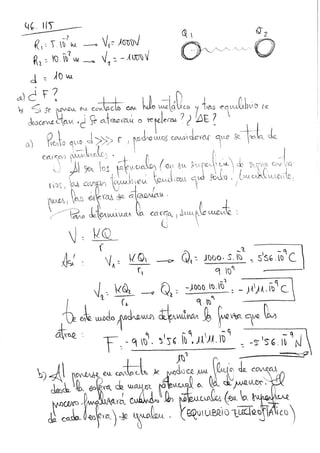 46. 115
R₁: 5.10⁻² m → V₁= 1000V
R₂= 10.10⁻² m → V₂ = -1000V
d = 10 m
Q₁ Q₂
a) ¿ F?
b) Si se ponen en contacto con hilo metálico y tras equilibrio se
desconectan. ¿ Se atraerán o repelerán? ¿ ΔE?
a) Puesto que d>>> r, podremos considerar que se trata de
cargas puntuales.
Al ser los potenciales (en su superficie) de signos contra-
rios, las cargas también tendrían que serlo. Inicialmente,
pues, las esferas se atraerían.
Para determinar la carga, simplemente:
V = KQ/r
Así: V₁ = KQ₁/r₁ → Q₁ = 1000.5.10⁻²/9.10⁹ = 5'56.10⁻⁹ C
V₂ = KQ₂/r₂ → Q₂ = -1000.10.10⁻²/9.10⁹ = -11'11.10⁻⁹ C
De este modo podremos determinar la fuerza que las
atrae:
F = -9.10⁹. 5'56.10⁻⁹. 11'11.10⁻⁹/10² = -5'56.10⁻⁹ N
b) Al ponerse en contacto se produce un flujo de cargas
desde la esfera de mayor potencial a la de menor. El
proceso finalizará cuando los potenciales (en la superficie
de cada esfera) se igualen. (EQUILIBRIO ELECTROSTÁTICO)